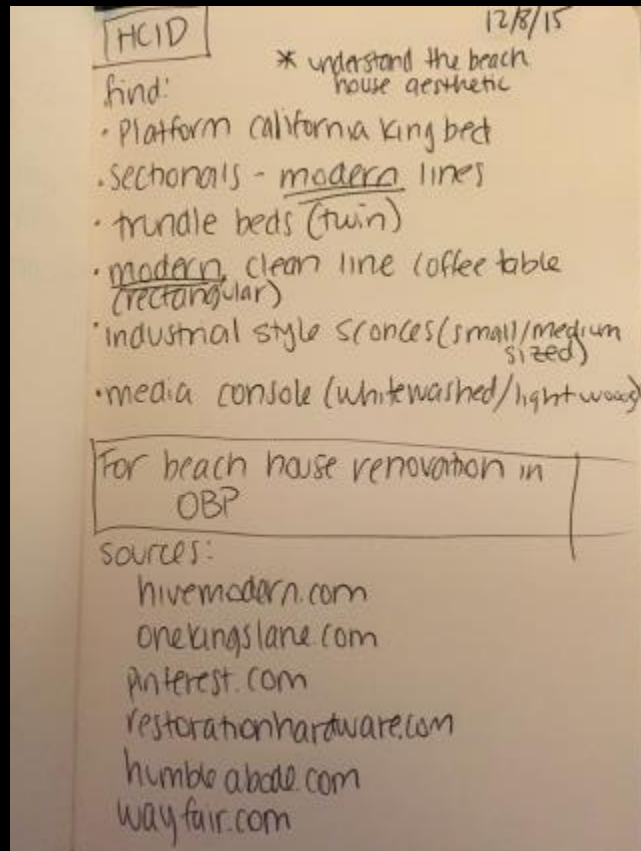 HCID
12/8/15
* understand the beach
house aesthetic
find:
• Platform california king bed
• sectionals - modern lines
• trundle beds (twin)
• modern, clean line coffee table
(rectangular)
• industrial style sconces (small/medium
sized)
• media console (whitewashed/light woods)
For beach house renovation in
OBP
sources:
hivemodern.com
onekingslane.com
pinterest.com
restorationhardware.com
humbleabode.com
wayfair.com